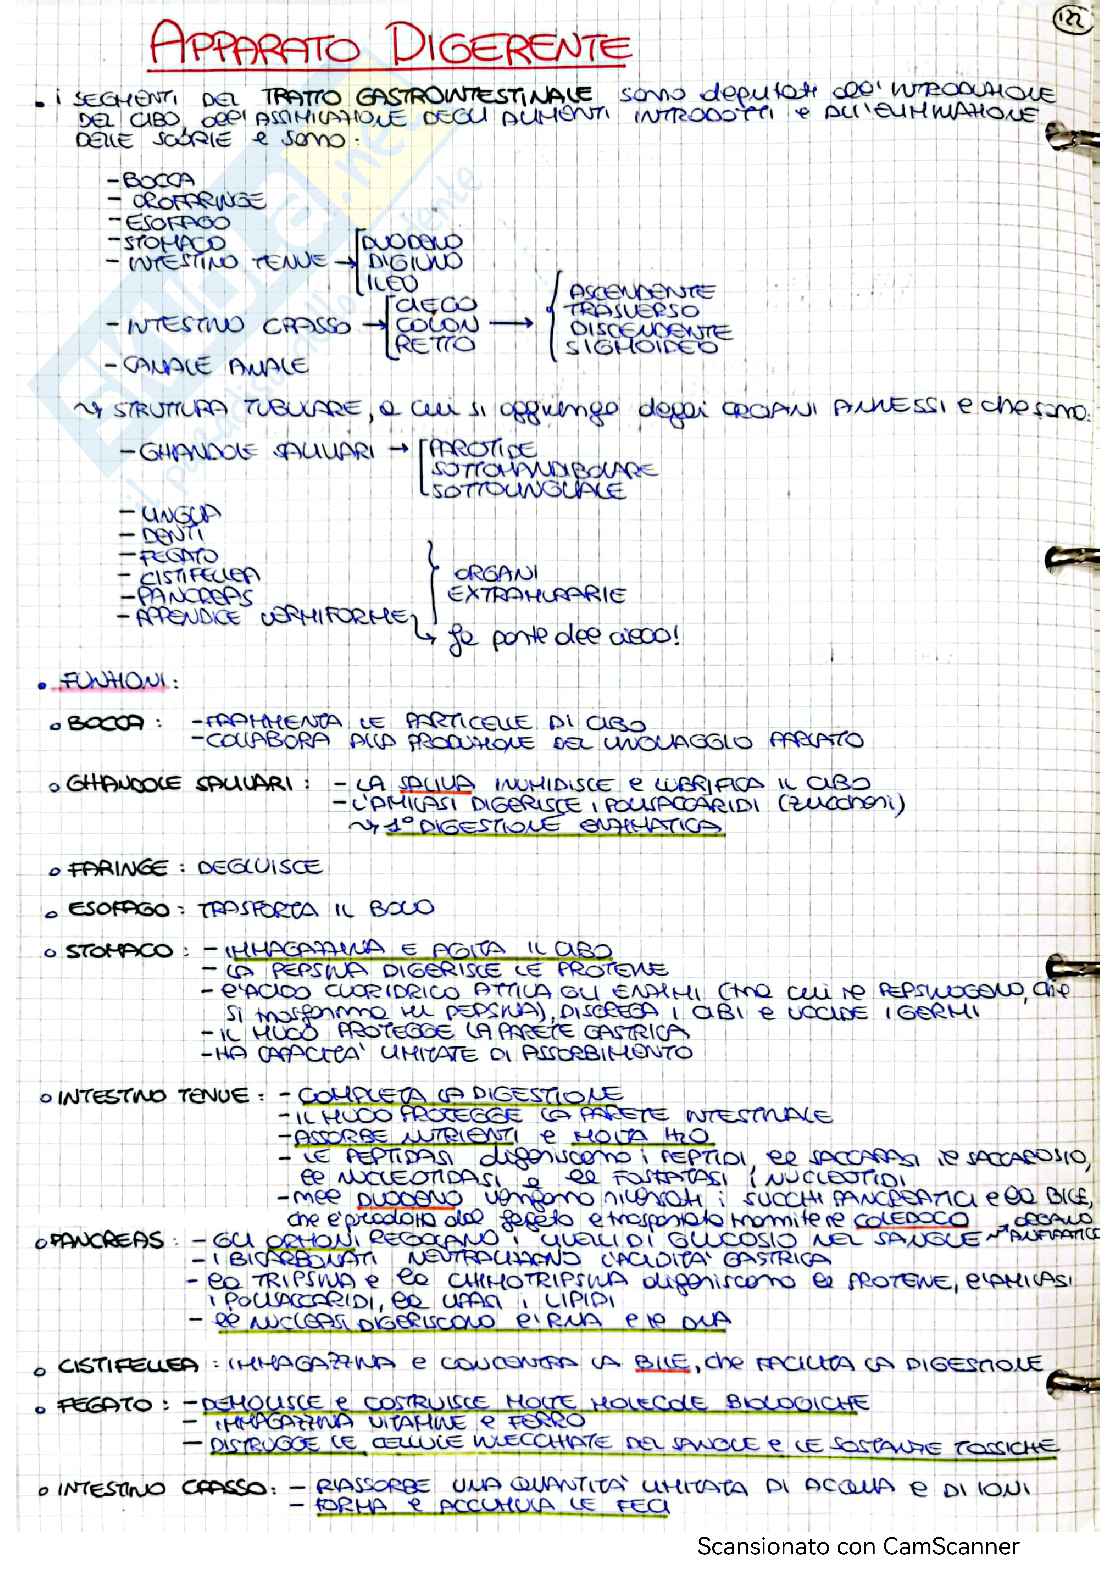 122
APPARATO DIGERENTE
• i SEGMENTI DEL TRATTO GASTROINTESTINALE sono deputati all'INTRODUZIONE
DEL CIBO, all'ASSIMILAZIONE DEGLI ALIMENTI INTRODOTTI e ALL'ELIMINAZIONE
DELLE SCORIE e sono:
- BOCCA
- OROFARINGE
- ESOFAGO
- STOMACO
- INTESTINO TENUE → DUODENO
DIGIUNO
ILEO
- INTESTINO CRASSO → CIECO
COLON → ASCENDENTE
TRASVERSO
DISCENDENTE
SIGMOIDEO
RETTO
- CANALE ANALE
↝ STRUTTURA TUBULARE, a cui si aggiungo degli ORGANI ANNESSI e che sono:
- GHIANDOLE SALIVARI → PAROTIDE
SOTTOMANDIBOLARE
SOTTOLINGUALE
- LINGUA
- DENTI
- FEGATO
- CISTIFELLEA
- PANCREAS
- APPENDICE VERMIFORME
ORGANI
EXTRAMURARIE
↳ fa parte del cieco!
• FUNZIONI:
o BOCCA: - FRAMMENTA LE PARTICELLE DI CIBO
- COLLABORA ALLA PRODUZIONE DEL LINGUAGGIO PARLATO
o GHIANDOLE SALIVARI: - LA SALIVA INUMIDISCE e LUBRIFICA IL CIBO
- L'AMILASI DIGERISCE I POLISACCARIDI (zuccheri)
↝ 1° DIGESTIONE ENZIMATICA
o FARINGE: DEGLUISCE
o ESOFAGO: TRASPORTA IL BOLO
o STOMACO: - IMMAGAZZINA E AGITA IL CIBO
- LA PEPSINA DIGERISCE LE PROTEINE
- l'ACIDO CLORIDRICO ATTIVA GLI ENZIMI (tra cui il PEPSINOGENO, che
si trasforma in PEPSINA), DISGREGA I CIBI e UCCIDE I GERMI
- IL MUCO PROTEGGE LA PARETE GASTRICA
- HA CAPACITA' LIMITATE DI ASSORBIMENTO
o INTESTINO TENUE: - COMPLETA LA DIGESTIONE
- IL MUCO PROTEGGE LA PARETE INTESTINALE
- ASSORBE NUTRIENTI e MOLTA H2O
- LE PEPTIDASI digeriscono i PEPTIDI, le SACCARASI il SACCAROSIO,
le NUCLEOTIDASI e le FOSFATASI i NUCLEOTIDI
- nel DUODENO vengono riversati i SUCCHI PANCREATICI e la BILE,
che è prodotta dal fegato e trasportata tramite il COLEDOCO
→ ORGANO ANFIPATICO
o PANCREAS: - GLI ORMONI REGOLANO I LIVELLI DI GLUCOSIO NEL SANGUE
- I BICARBONATI NEUTRALIZZANO L'ACIDITÀ GASTRICA
- la TRIPSINA e la CHIMOTRIPSINA digeriscono le PROTEINE, l'AMILASI
i POLISACCARIDI, la LIPASI i LIPIDI
- le NUCLEASI DIGERISCONO l'RNA e il DNA
o CISTIFELLEA: IMMAGAZZINA e CONCENTRA LA BILE, che FACILITA LA DIGESTIONE
o FEGATO: - DEMOLISCE e COSTRUISCE MOLTE MOLECOLE BIOLOGICHE
- IMMAGAZZINA VITAMINE e FERRO
- DISTRUGGE LE CELLULE INVECCHIATE DEL SANGUE e LE SOSTANZE TOSSICHE
o INTESTINO CRASSO: - RIASSORBE UNA QUANTITA' LIMITATA DI ACQUA e DI IONI
- FORMA e ACCUMULA LE FECI
Scansionato con CamScanner